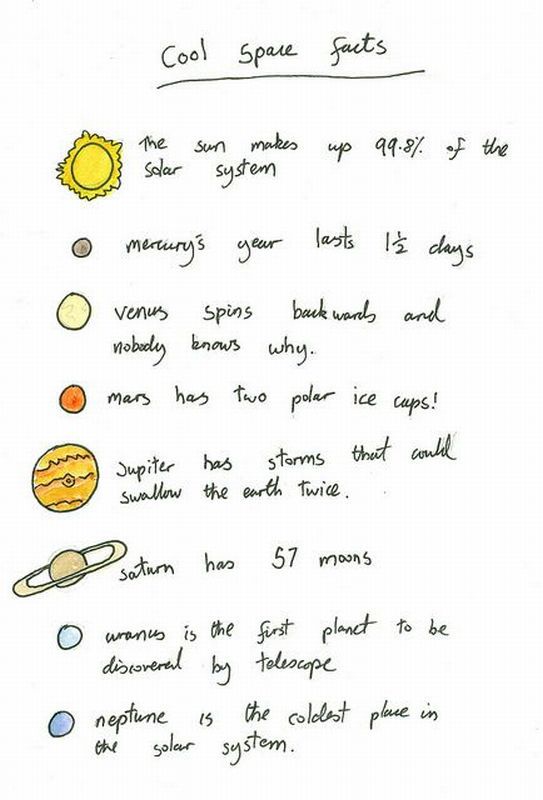 Cool Space facts
The sun makes up 99.8% of the
solar system
mercury's year lasts 1½ days
venus spins backwards and
nobody knows why.
mars has two polar ice caps!
Jupiter has storms that could
swallow the earth twice.
saturn has 57 moons
uranus is the first planet to be
discovered by telescope
neptune is the coldest place in
the solar system.